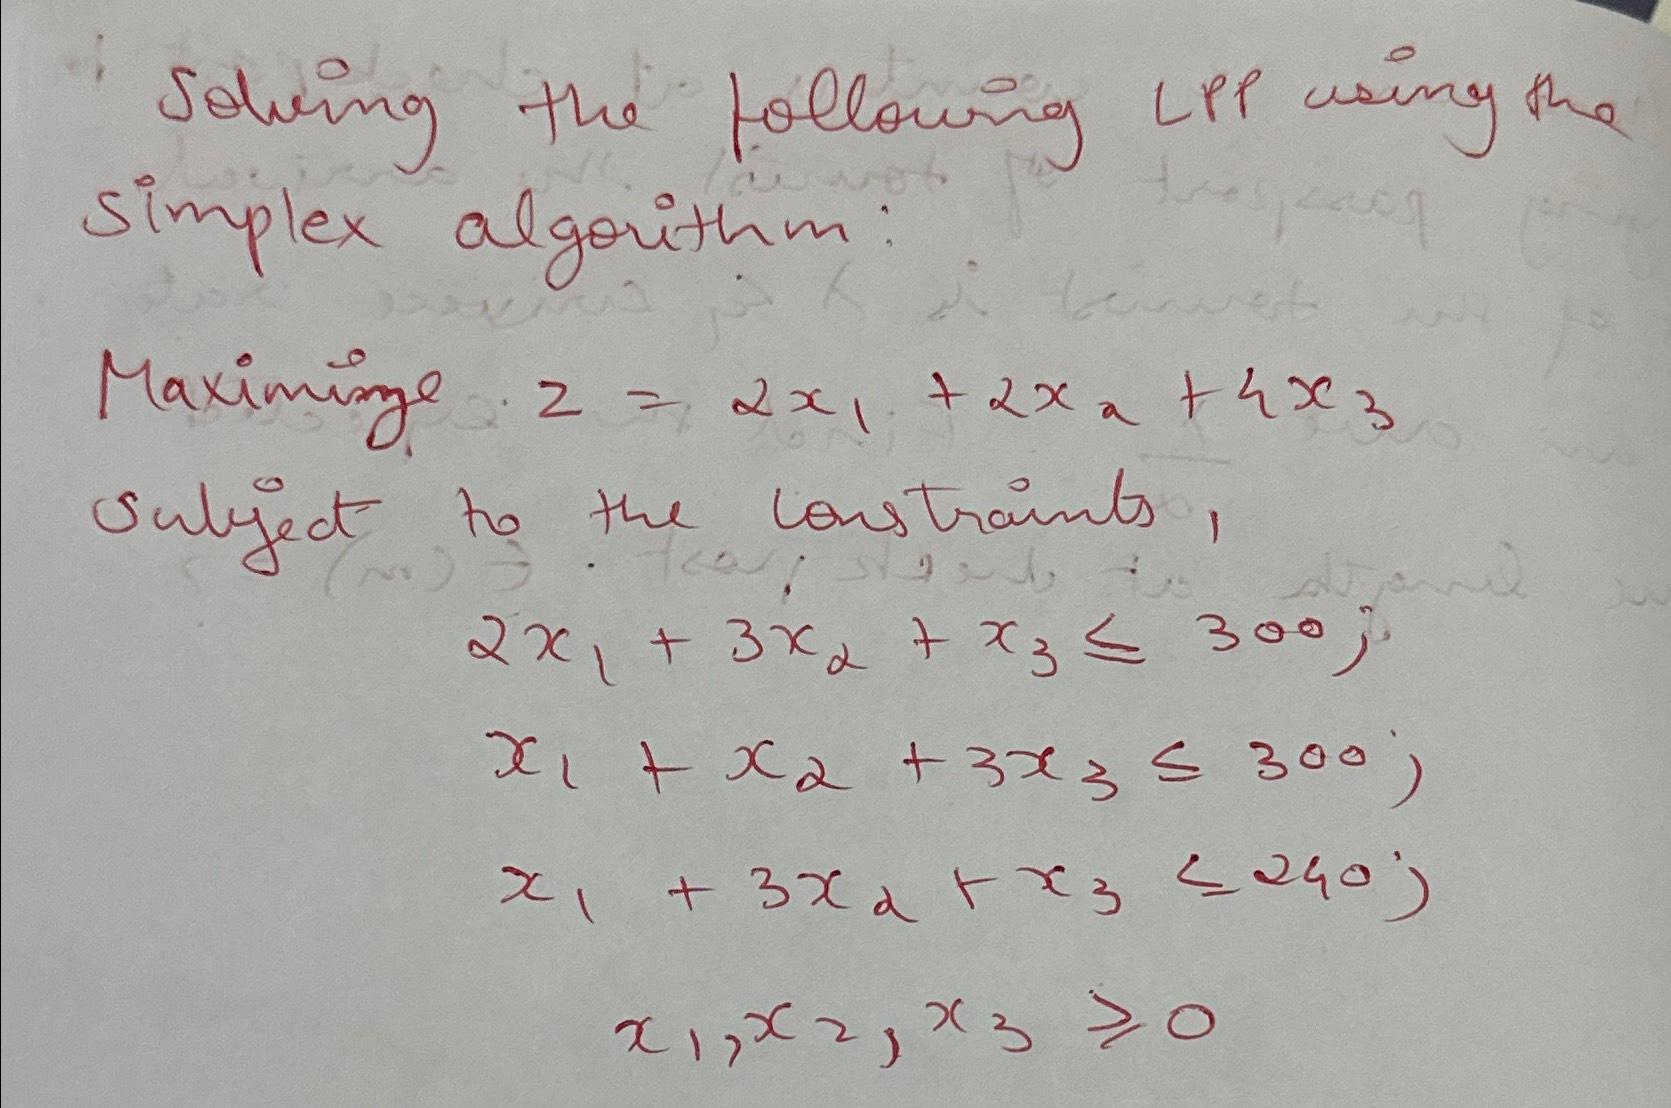 Solving the following LPP using the
simplex algorithm:
Maximize z = 2x₁ + 2x₂ + 4x₃
subject to the constraints,
2x₁ + 3x₂ + x₃ ≤ 300;
x₁ + x₂ + 3x₃ ≤ 300;
x₁ + 3x₂ + x₃ ≤ 240;
x₁, x₂, x₃ ≥ 0